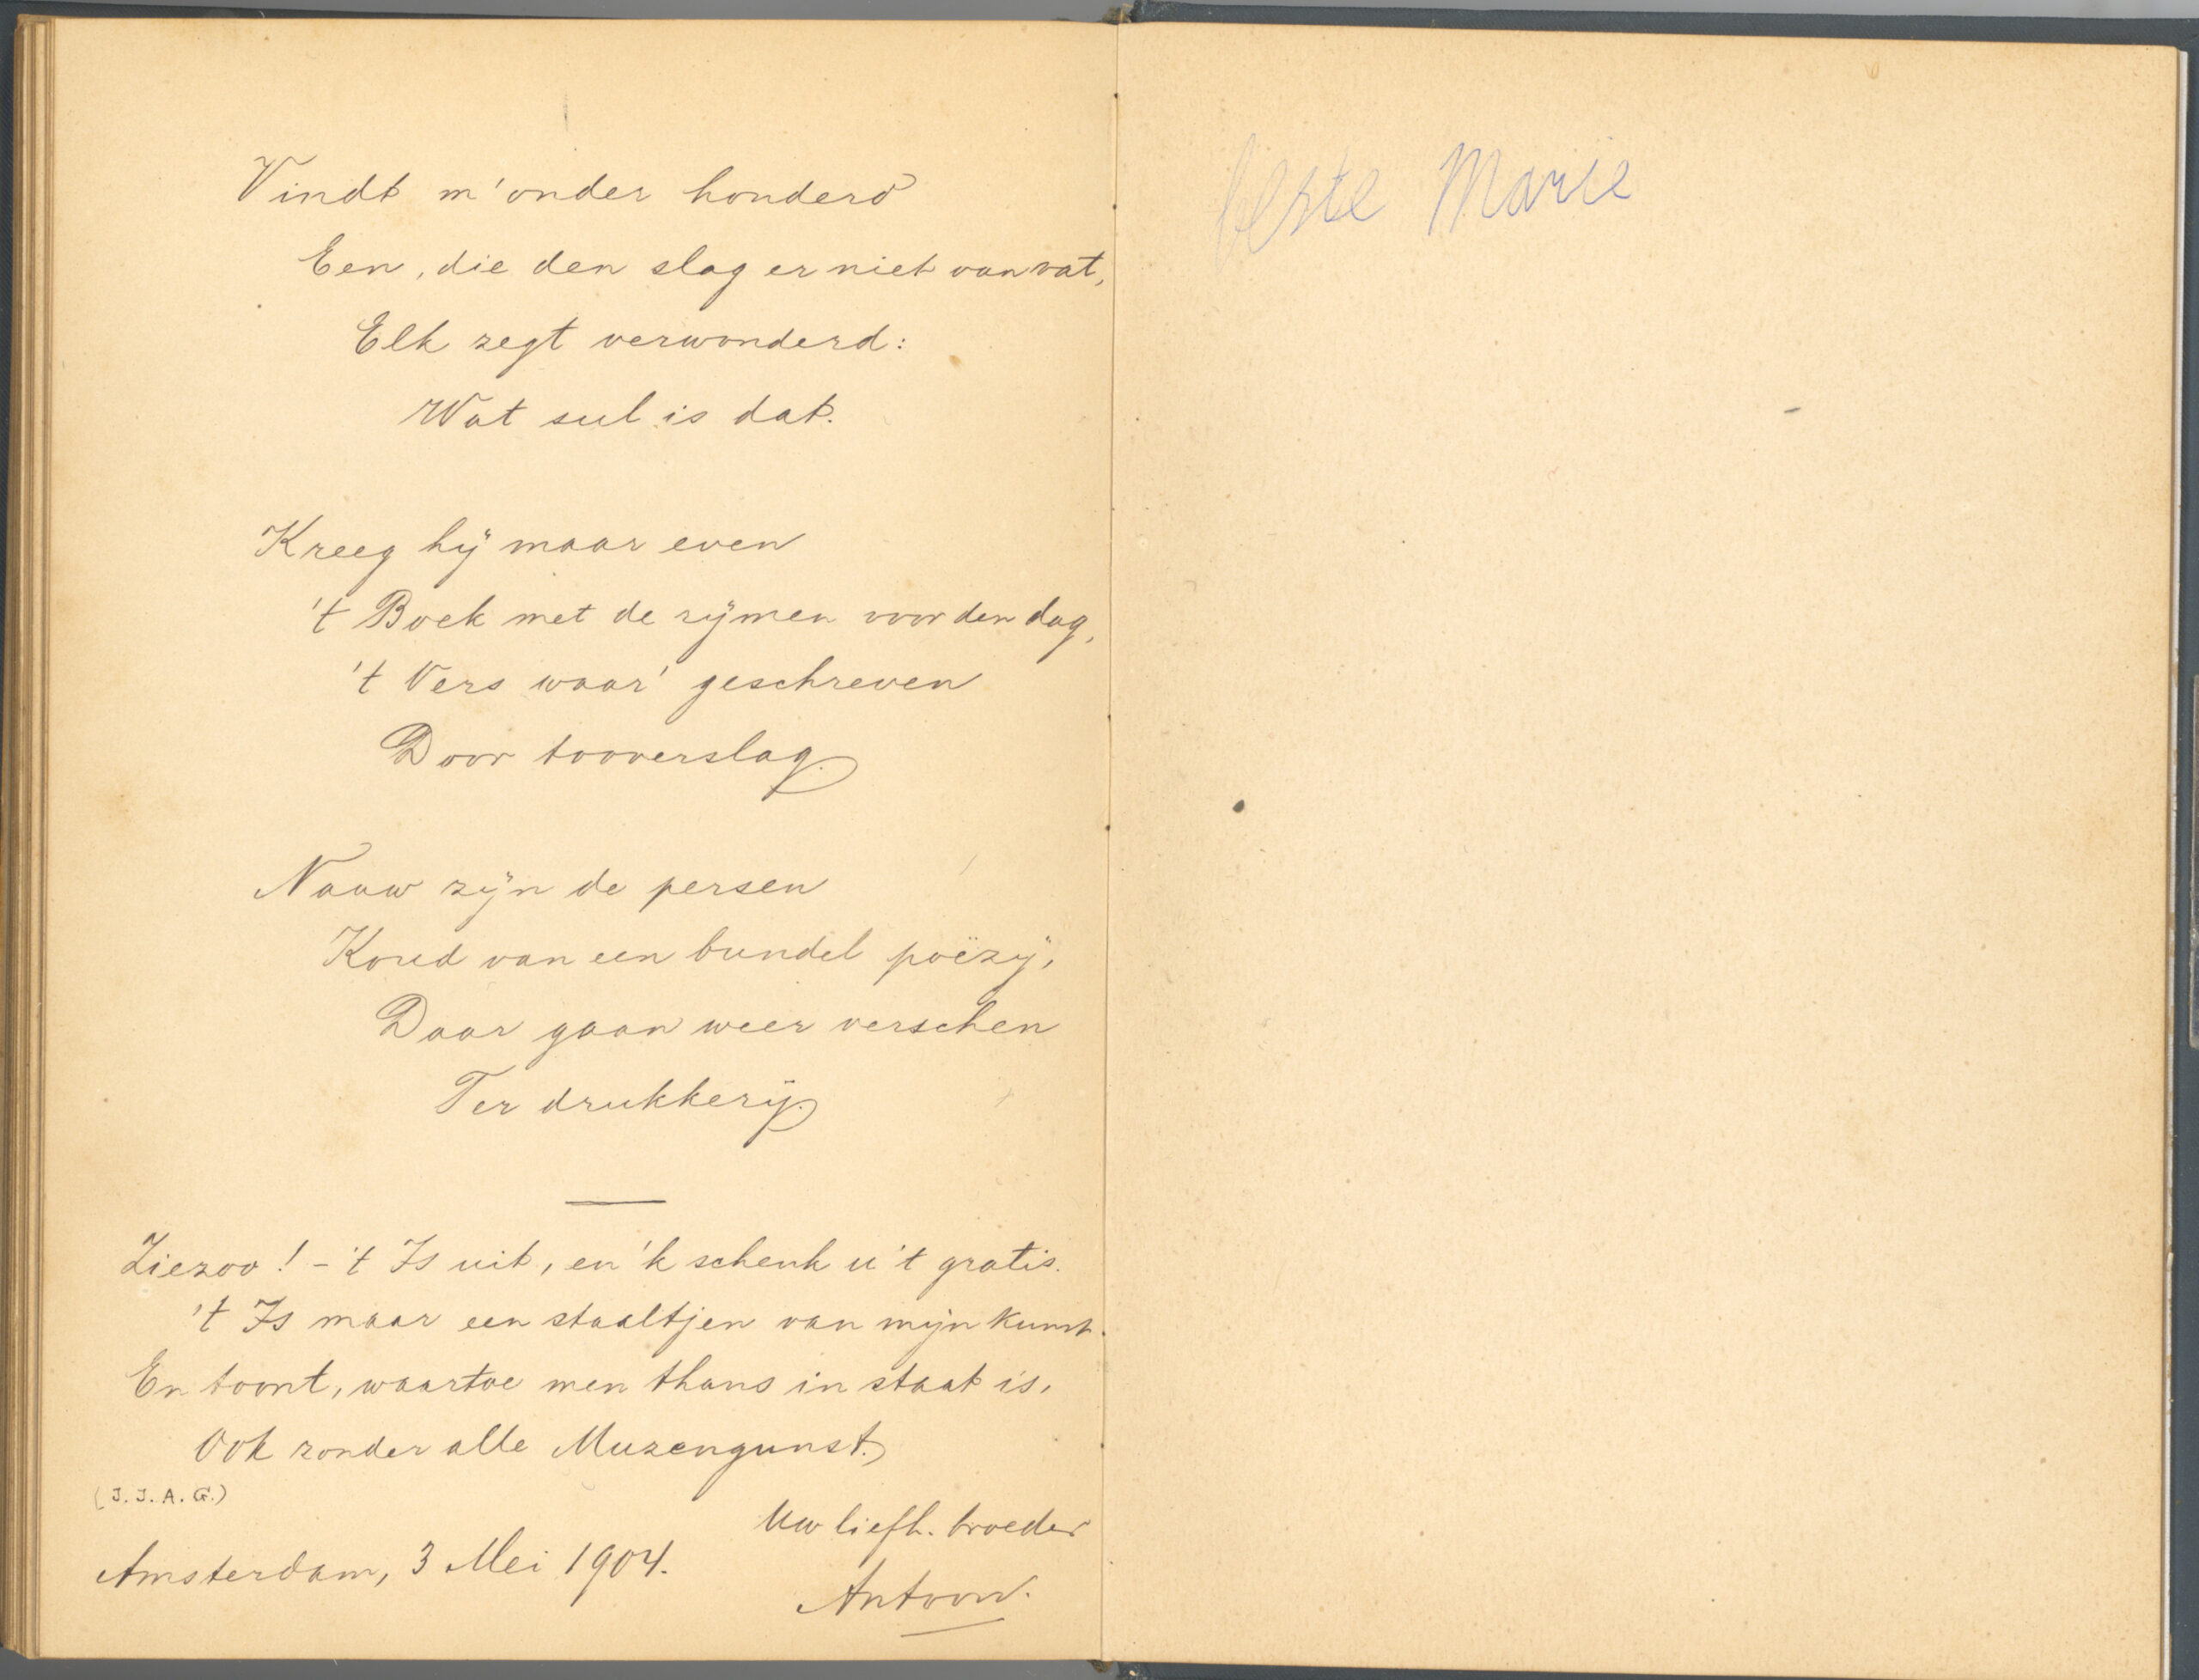 Vindt m' onder honderd
Een, die den slag er niet van vat,
Elk zegt verwonderd:
Wat sul is dat.
Kreeg hij maar even
't Boek met de rijmen voor den dag,
't Vers waar' geschreven
Door tooverslag.
Nauw zijn de persen
Koud van een bundel poëzij,
Daar gaan weer verschen
Ter drukkerij.
Ziezoo! - 't Is uit, en 'k schenk u 't gratis.
't Is maar een staaltjen van mijn kunst.
En toont, waartoe men thans in staat is,
Ook zonder alle Muzengunst.
(J. J. A. G.)
Uw liefh. broeder
Amsterdam, 3 Mei 1904.
Antoon.
beste Marie